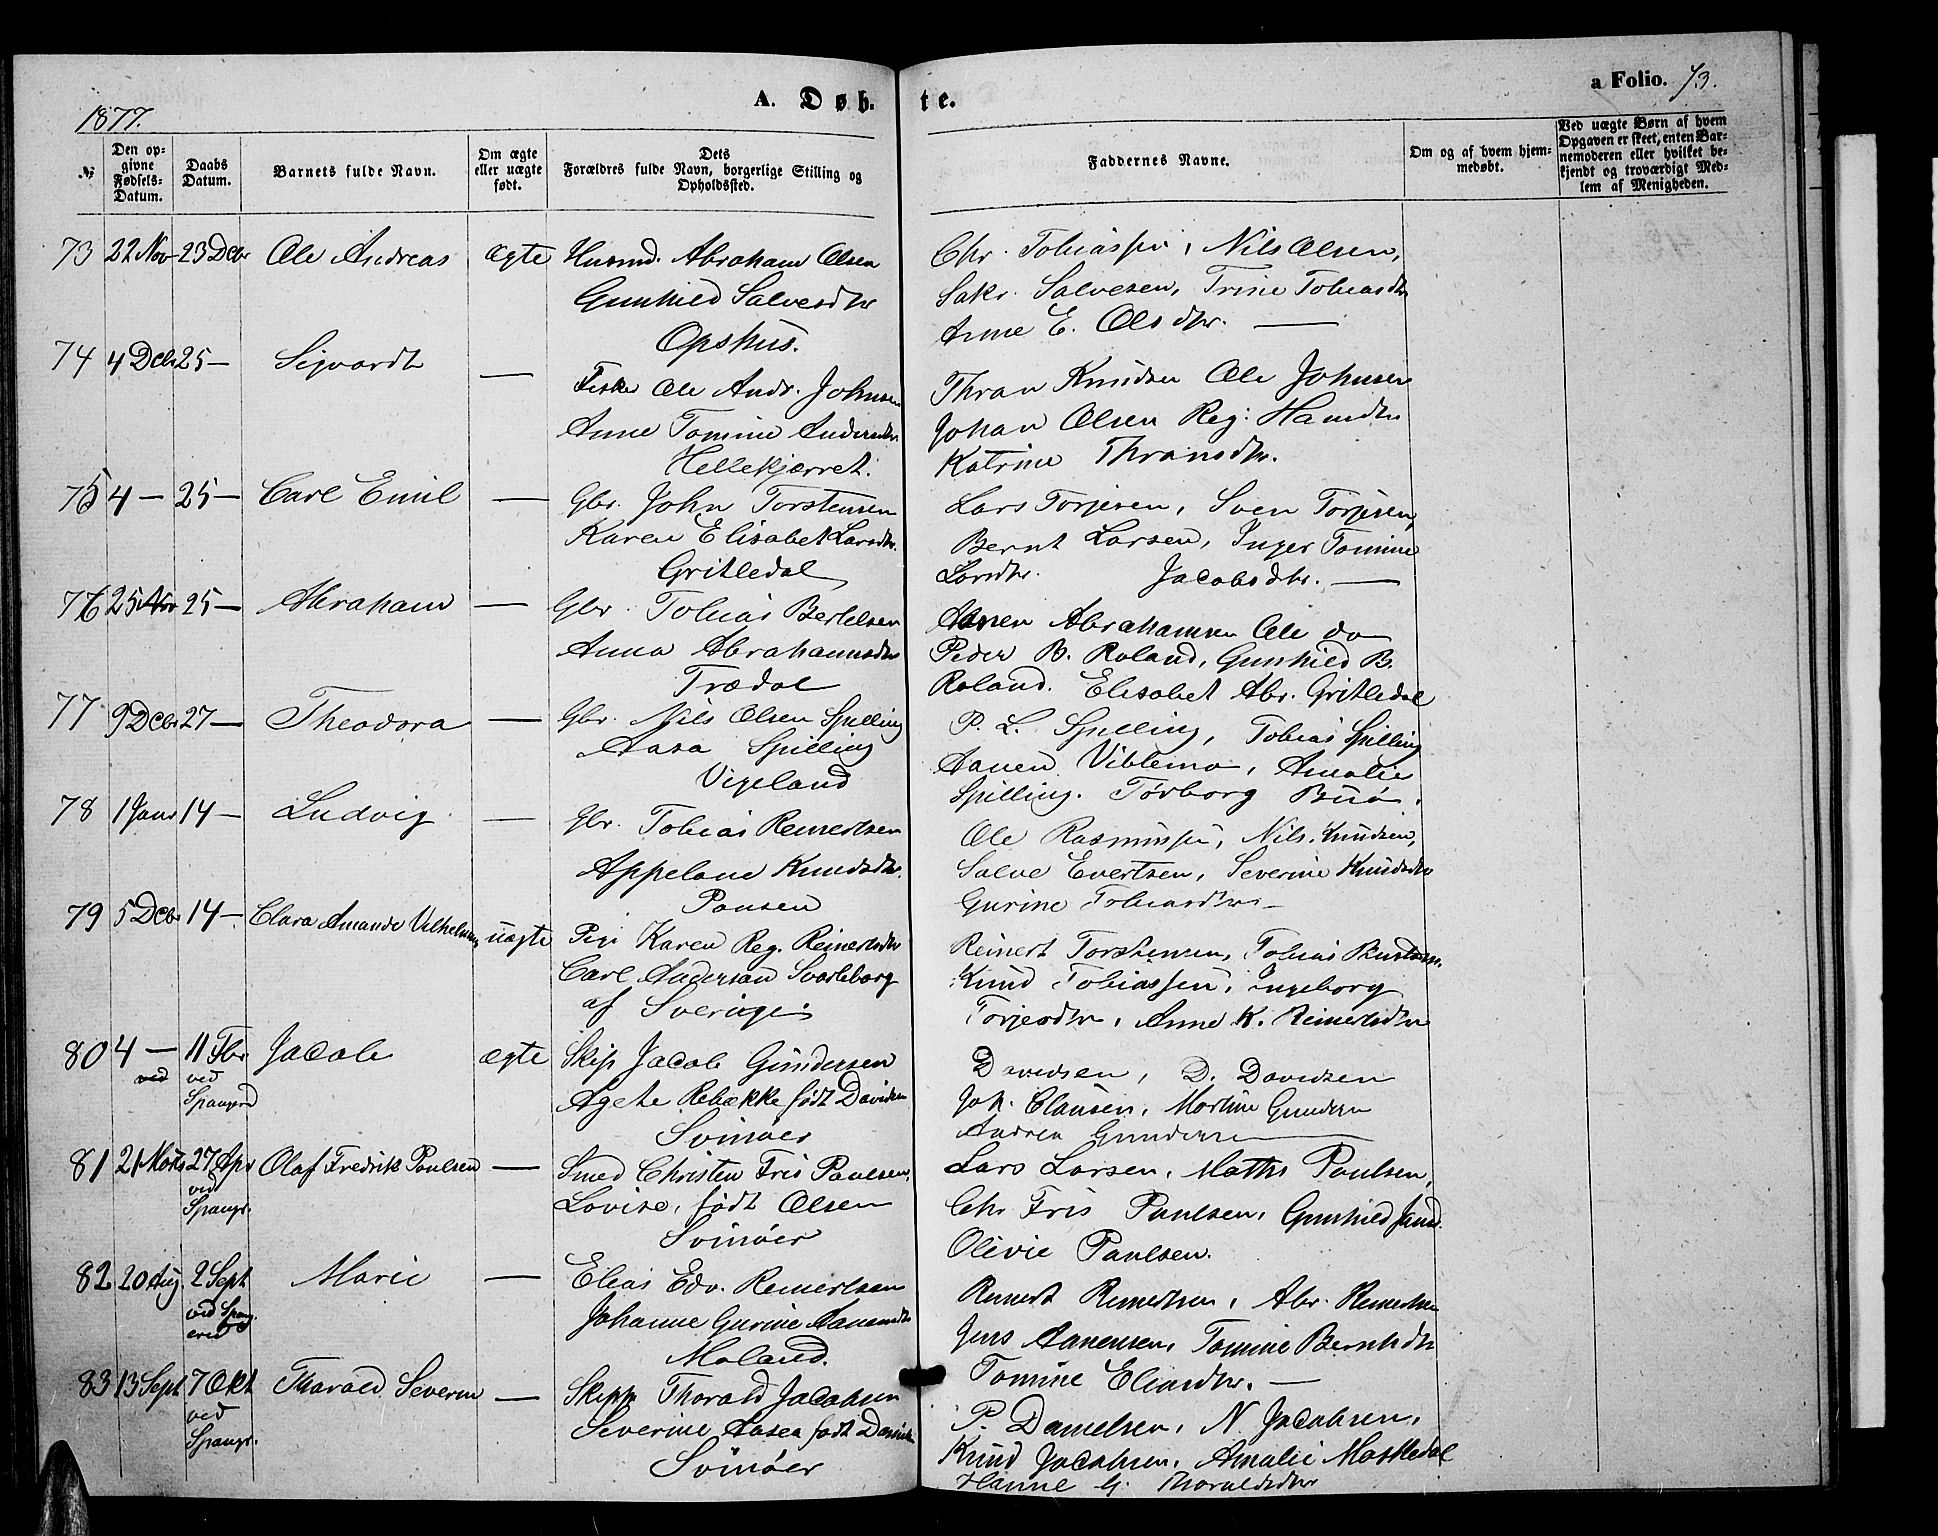 1877.
A. Døb-
te.
a Folio. 73.
№
Den op-
givne
Fødsels-
Datum.
Daabs
Datum.
Barnets fulde Navn.
Om ægte
eller uægte
født.
Dets
Forældres fulde Navn, borgerlige Stilling og
Opholdssted.
Faddernes Navne.
Om og af hvem hjem-
medøbt.
Ved uægte Børn af hvem
Opgaven er skeet, enten Bar-
nemoderen eller hvilket be-
kjendt og troværdigt Med-
lem af Menigheden.
73 22 Nov 23 Dcbr Ole Andreas ægte Husmd. Abraham Olsen
Gunhild Salvesdtr
Opshus.
Chr. Tobiassen, Nils Olsen,
Sakr. Salvesen, Trine Tobiasdtr
Anne E. Olsdtr. —
74 4 Dcbr 25 — Sigvardt — Fisker Ole Andr. Johnsen
Anne Tomine Andersdtr.
Hellekjærret.
Thran Knudsen Ole Johnsen
Johan Olsen Reg: Hansdtr
Katrine Thransdtr.
75 4 — 25 — Carl Emil — Gbr. John Torstensen
Karen Elisabet Larsdtr.
Gritledal
Lars Torjesen, Sven Torjesen,
Bernt Larsen, Inger Tomine
Larsdtr. Jacobsdtr. —
76 25 Nov 25 — Abraham — Gbr. Tobias Bertelsen
Anna Abrahamsdtr
Trædal
Aanen Abrahamsen Ole do
Peder B. Roland, Gunhild B.
Roland. Elisabet Abr. Gritledal
77 9 Dcbr 27 — Theodora — Gbr. Nils Olsen Spilling
Aasa Spilling
Vigeland
P. L. Spilling, Tobias Spilling
Aanen Viblemo, Amalie
Spilling. Torborg Buø.
78 1 Janr 14 — Ludvig — Gbr. Tobias Reinertsen
Appelone Knudsdtr.
Pousen
Ole Rasmussen, Nils Knudsen,
Salve Evertsen, Severine Knudsdtr
Gurine Tobiasdtr —
79 5 Dcbr 14 — Clara Amande Vilhelmine uægte Pige Karen Reg. Reinertsdtr
Carl Anderson Svarteborg
af Sverige
Reinert Torstensen, Tobias
Knud Tobiassen, Ingeborg
Torjesdtr, Anne K. Reinertsdtr
80 4 — 11 Fbr Jacob ægte Skip Jacob Gundersen
ved
ved
Spangrd
Agete Rebække født Davidsen
Svinøer
Davidsen, D. Davidsen
Joh. Clausen, Martine Gundersn
Andrea Gundersen —
81 21 Marts 27 Apr Olaf Fredrik Poulsen — Smed Christen Fris Paulsen,
ved
Spangr.
Lovise, født Olsen
Svinøer
Lars Larsen, Maths Paulsen,
Chr Fris Paulsen, Gunhild Jansd.
Olivie Paulsen.
82 20 Aug. 2 Sept Marie — Elias Edv. Reinertsen
ved Spang
ereid
Johanne Gurine Aanensdtr
Moland.
Reinert Reinertsen, Abr. Reinertsen
Jens Aanensen, Tomine Berntsdtr
Tomine Eliasdtr. —
83 13 Sept 7 Okt Thorald Severin — Skipp Thorald Jacobsen
ved
Spangr.
Severine Aasea født Danielsen
Svinøer
P. Danielsen, N. Jacobsen,
Knud Jacobsen, Amalie Moskedal
Hanne G. Thoraldsdtr